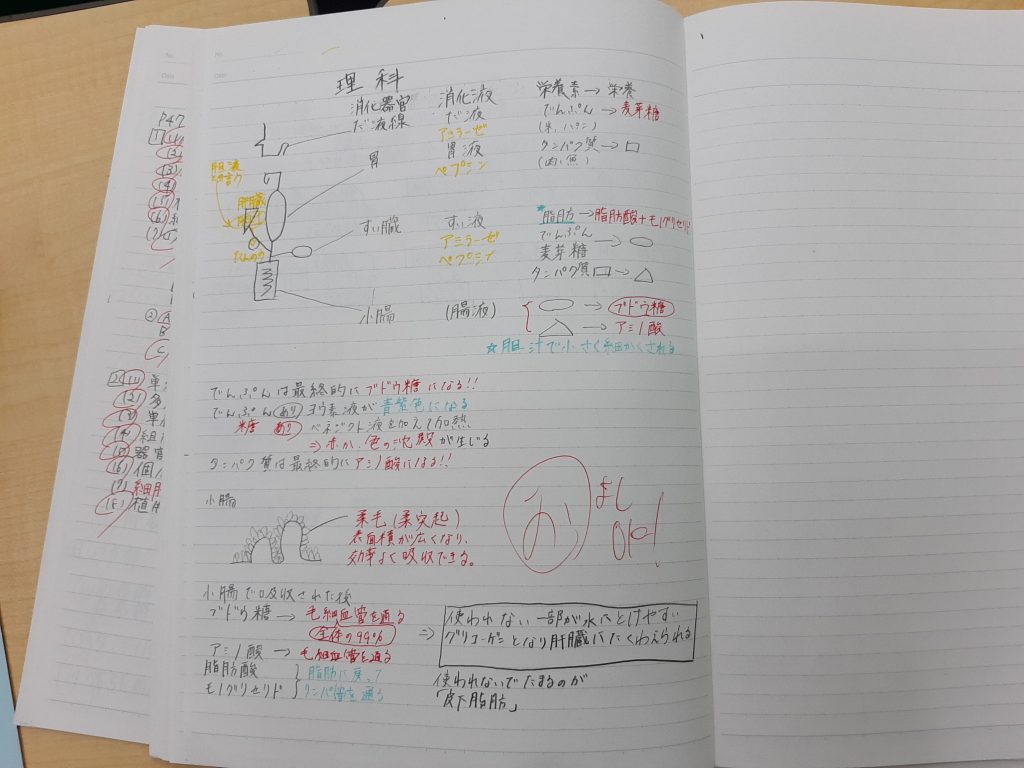 理科
消化器官 消化液 栄養素→栄養
だ液線 だ液 でんぷん→麦芽糖
アミラーゼ (米、パン)
胃 胃液 タンパク質→□
ペプシン (肉、魚)
胆液
肝臓
たんのう
☆脂肪→脂肪酸+モノグリセリド
すい臓 すい液 でんぷん
アミラーゼ 麦芽糖
ペプシン タンパク質□→△
小腸 (腸液) →ブドウ糖
△→アミノ酸
☆胆汁で小さく細かくされる
でんぷんは最終的にブドウ糖になる!!
でんぷんありヨウ素液が青紫色になる
糖 あり ベネジクト液を加えて加熱
⇒赤かっ色の沈殿が生じる
タンパク質は最終的にアミノ酸になる!!
小腸
柔毛(柔突起)
表面積が広くなり、
効率よく吸収できる。
お
よし
OK!
小腸で吸収された後
ブドウ糖→毛細血管を通る
全体の99%
⇒ 使われない一部が水にとけやすい
グリコーゲンとなり肝臓にたくわえられる
アミノ酸→毛細血管を通る
脂肪酸 脂肪に戻って
モノグリセリド リンパ管を通る
使われないでたまるのが
「皮下脂肪」
P47